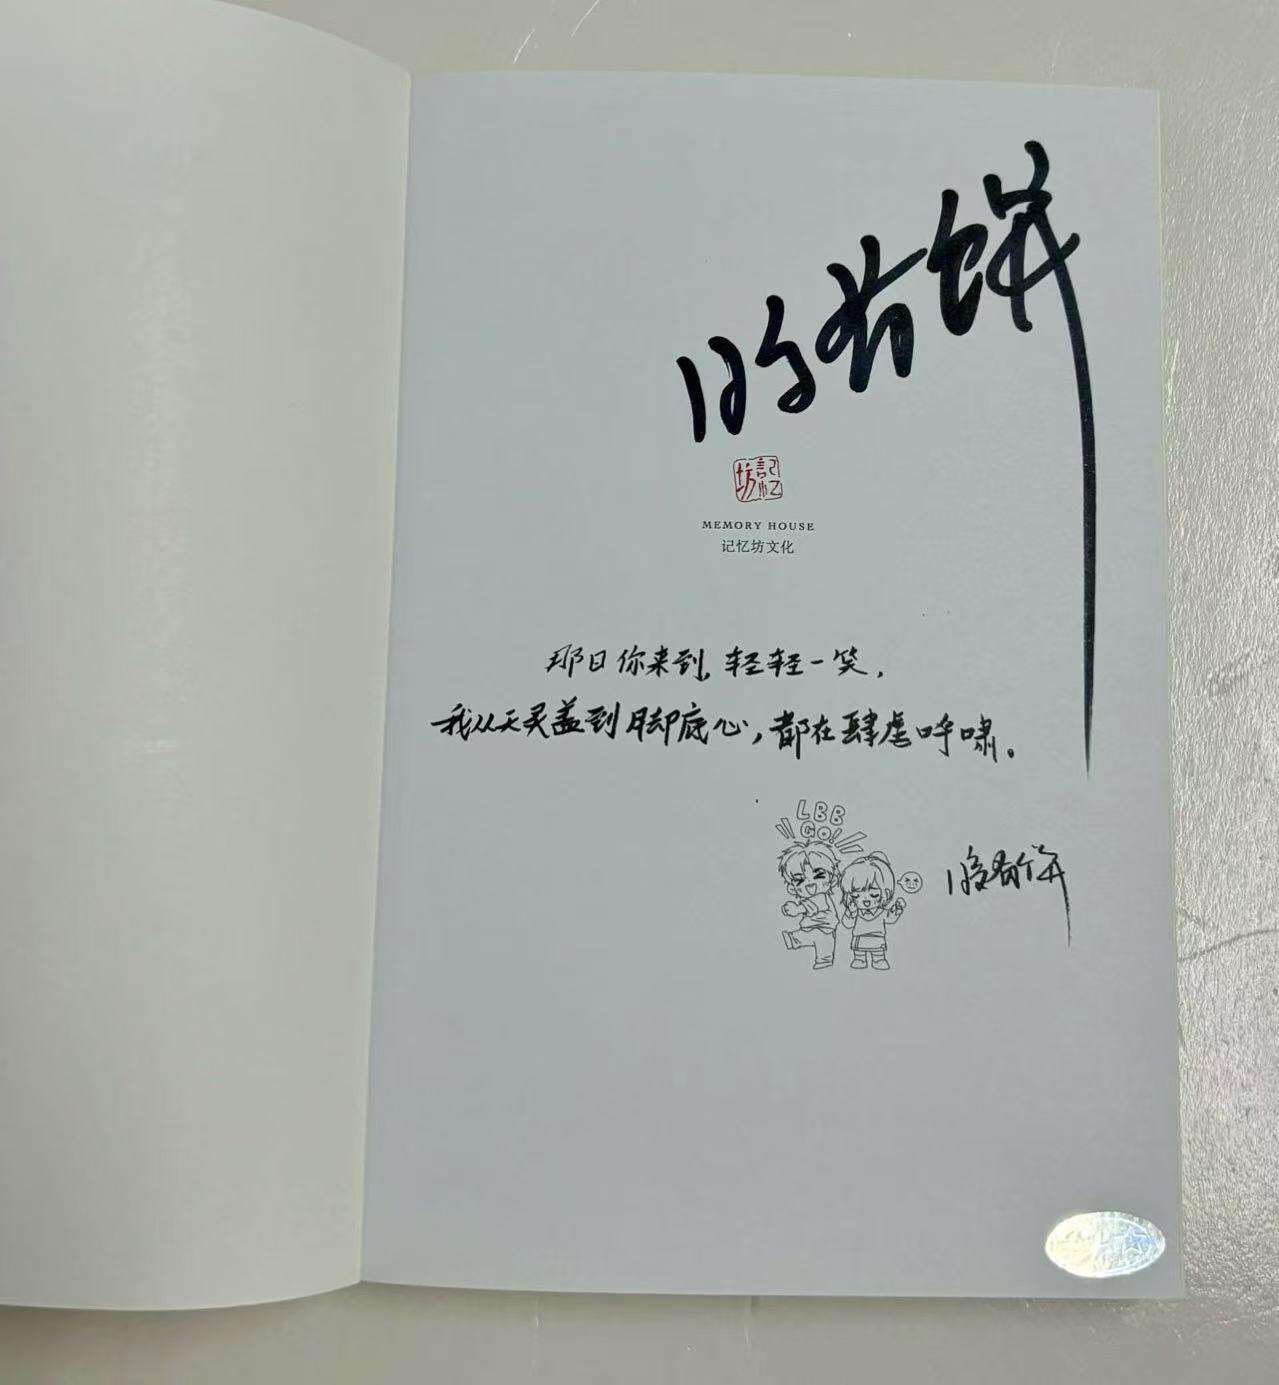 有饼
記忆坊
MEMORY HOUSE
记忆坊文化
那日你来到,轻轻一笑,
我从天灵盖到脚底心,都在肆虐呼啸。
LBB
GO!
有饼